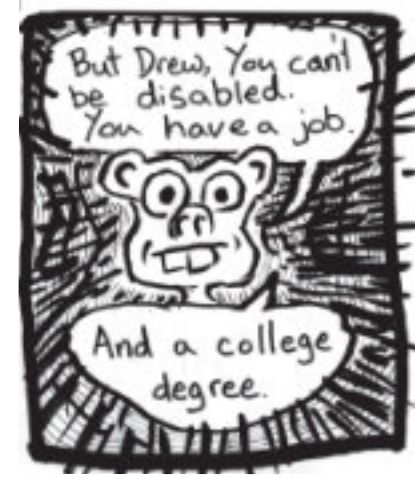 But Drew, You can't
be disabled.
You have a job.
And a college
degree.